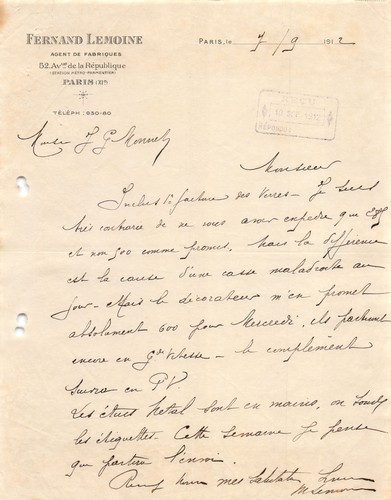 FERNAND LEMOINE
AGENT DE FABRIQUES
52, Av.ue de la République
(STATION MÉTRO-PARMENTIER)
PARIS (XIe)
TÉLÉPH: 930-80
PARIS, le 7/9 1912
REÇU
RÉPONDU
J G Monnet
Monsieur
Inclus la facture des verres - Je suis
très de ne vous avoir que
et non 500 comme promis. Mais la différence
est la cause d'une casse maladroite au
four - Mais le décorateur m'en promet
absolument 600 pour Mercredi, ils partiront
encore en Gde Vitesse - le complément
suivra en P.V.
Les étuis Métal sont en mains, on
les étiquettes. Cette semaine je pense
que partira l'envoi.
mes